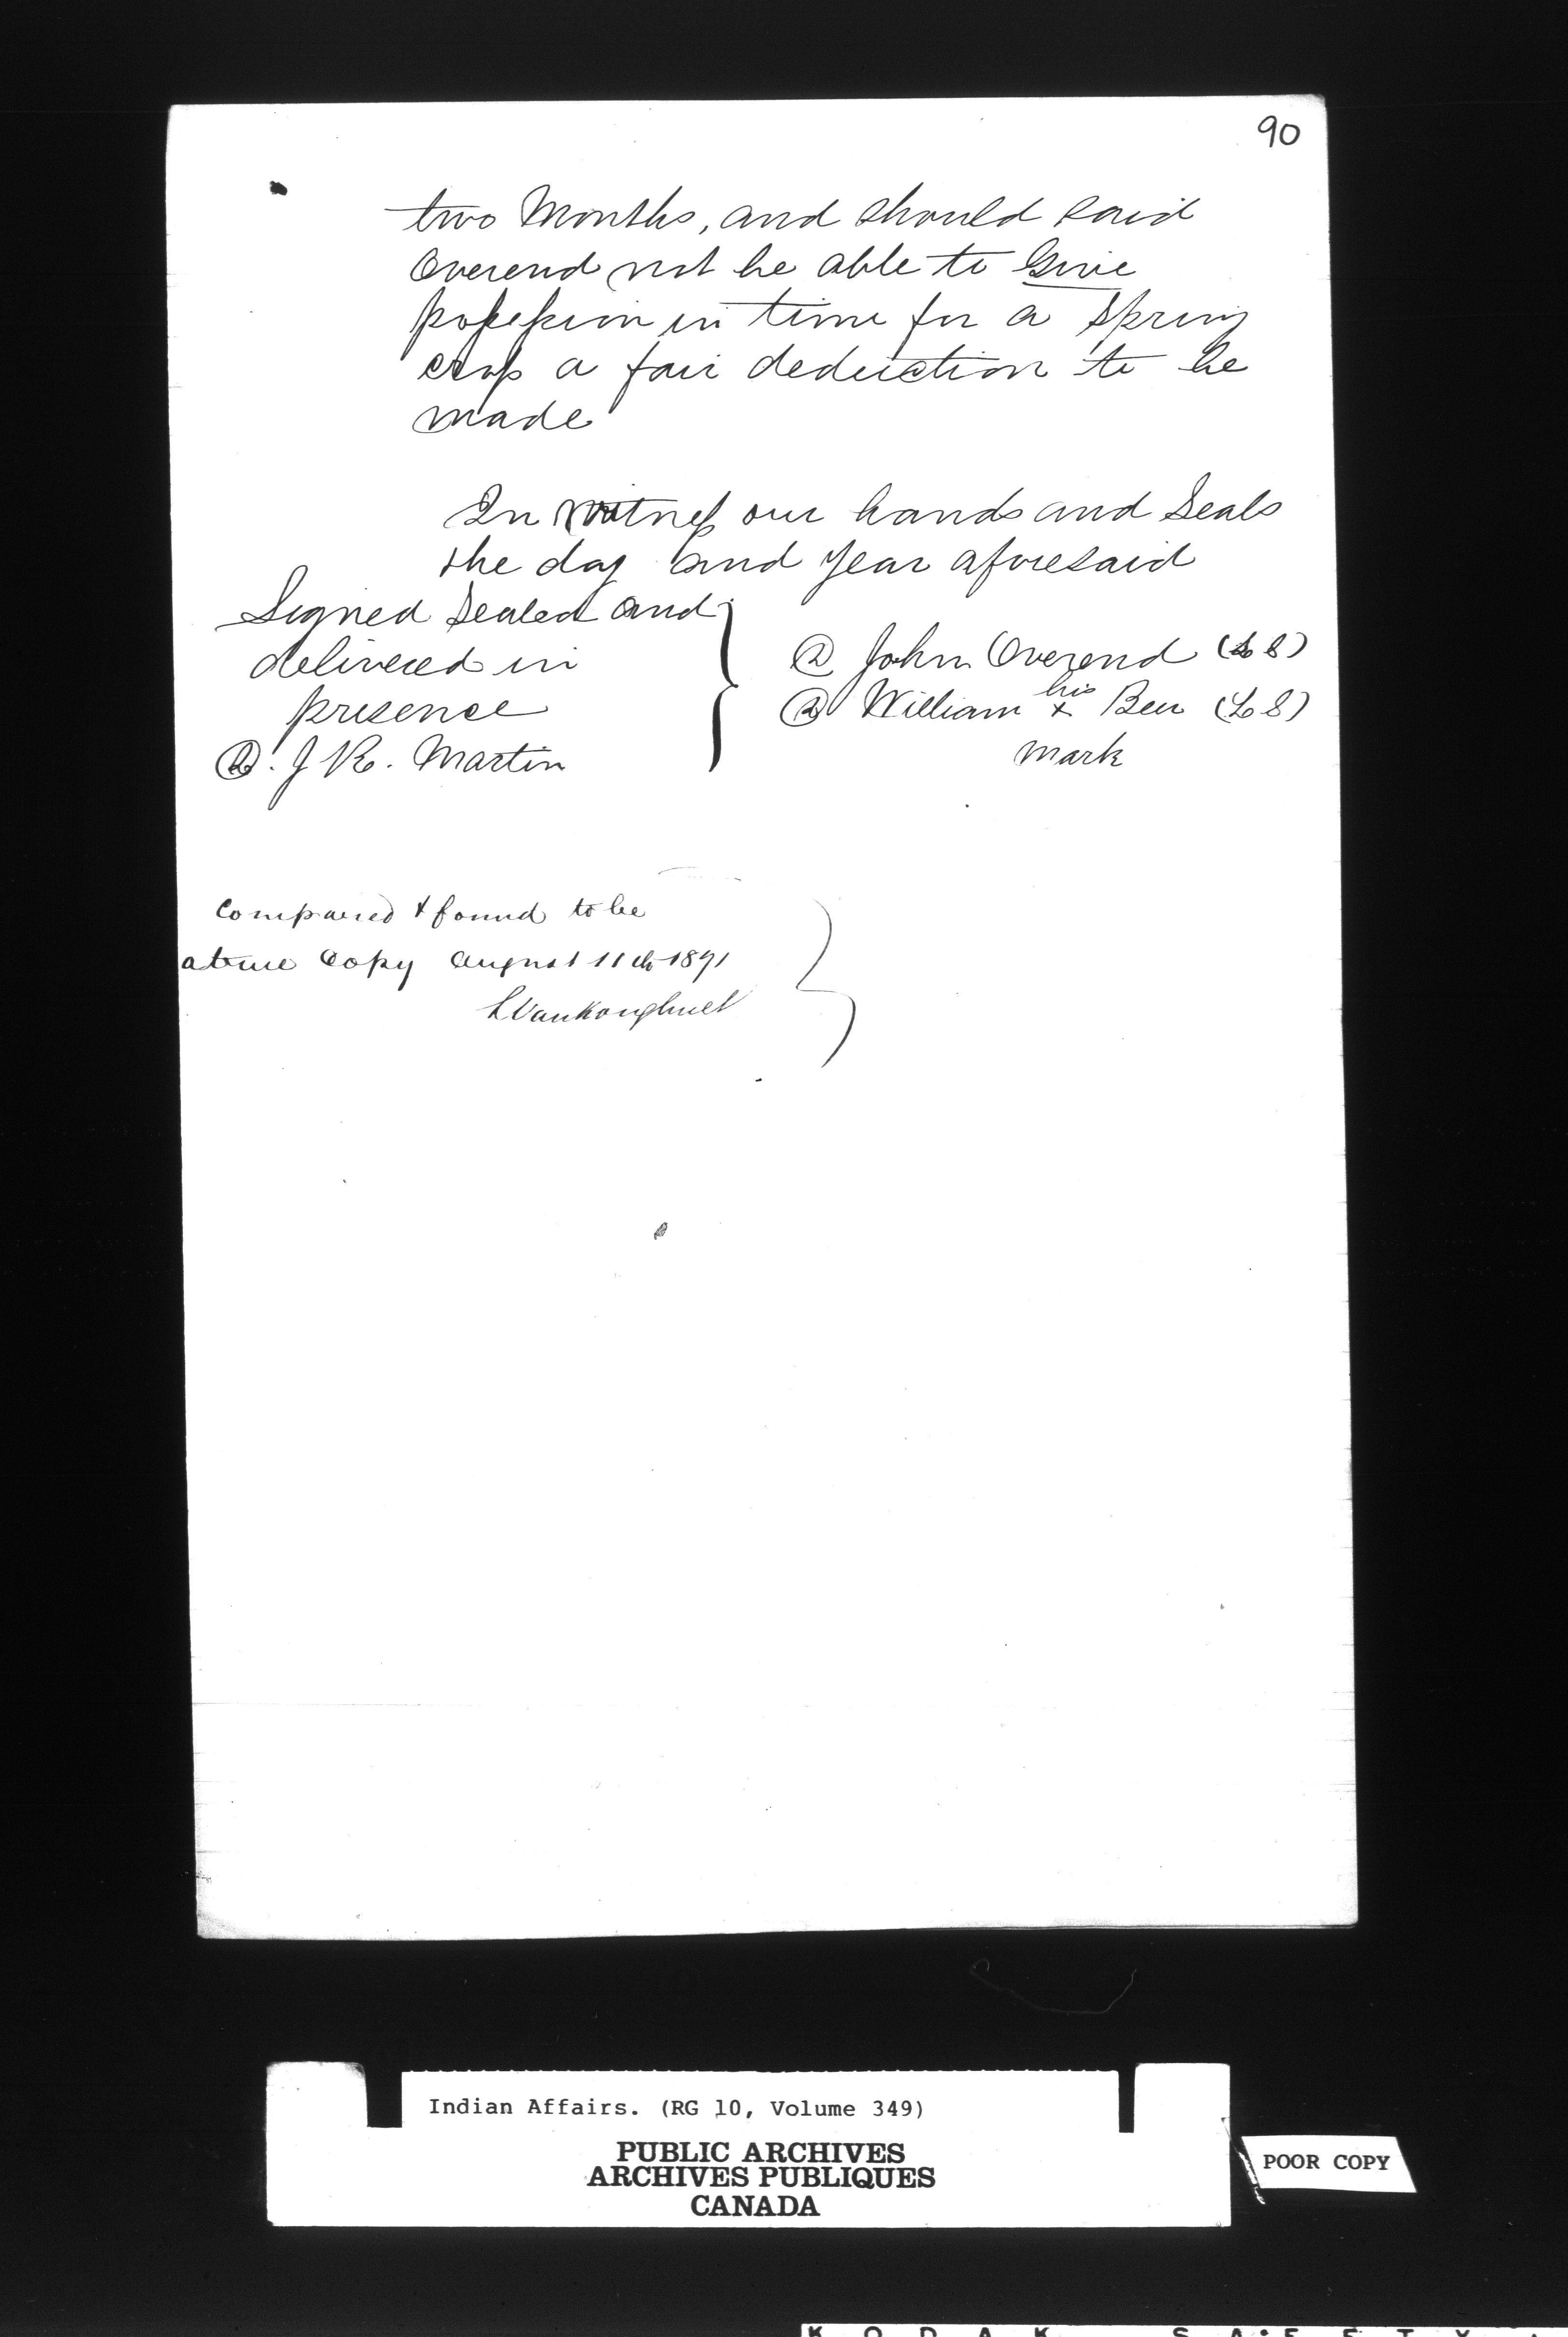 90
two Months, and should said
Overend not be able to Give
possession in time for a Spring
crop a fair deduction to be
made
In witness our hands and Seals
the day and year aforesaid
Signed Sealed and
delivered in
presence
J R. Martin
John Overend (L S)
his
William x Ben (L S)
mark
Compared & found to be
a true Copy August 11th 1891
LVankoughnet
Indian Affairs. (RG 10, Volume 349)
PUBLIC ARCHIVES
ARCHIVES PUBLIQUES
CANADA
POOR COPY
KODAK SAFETY